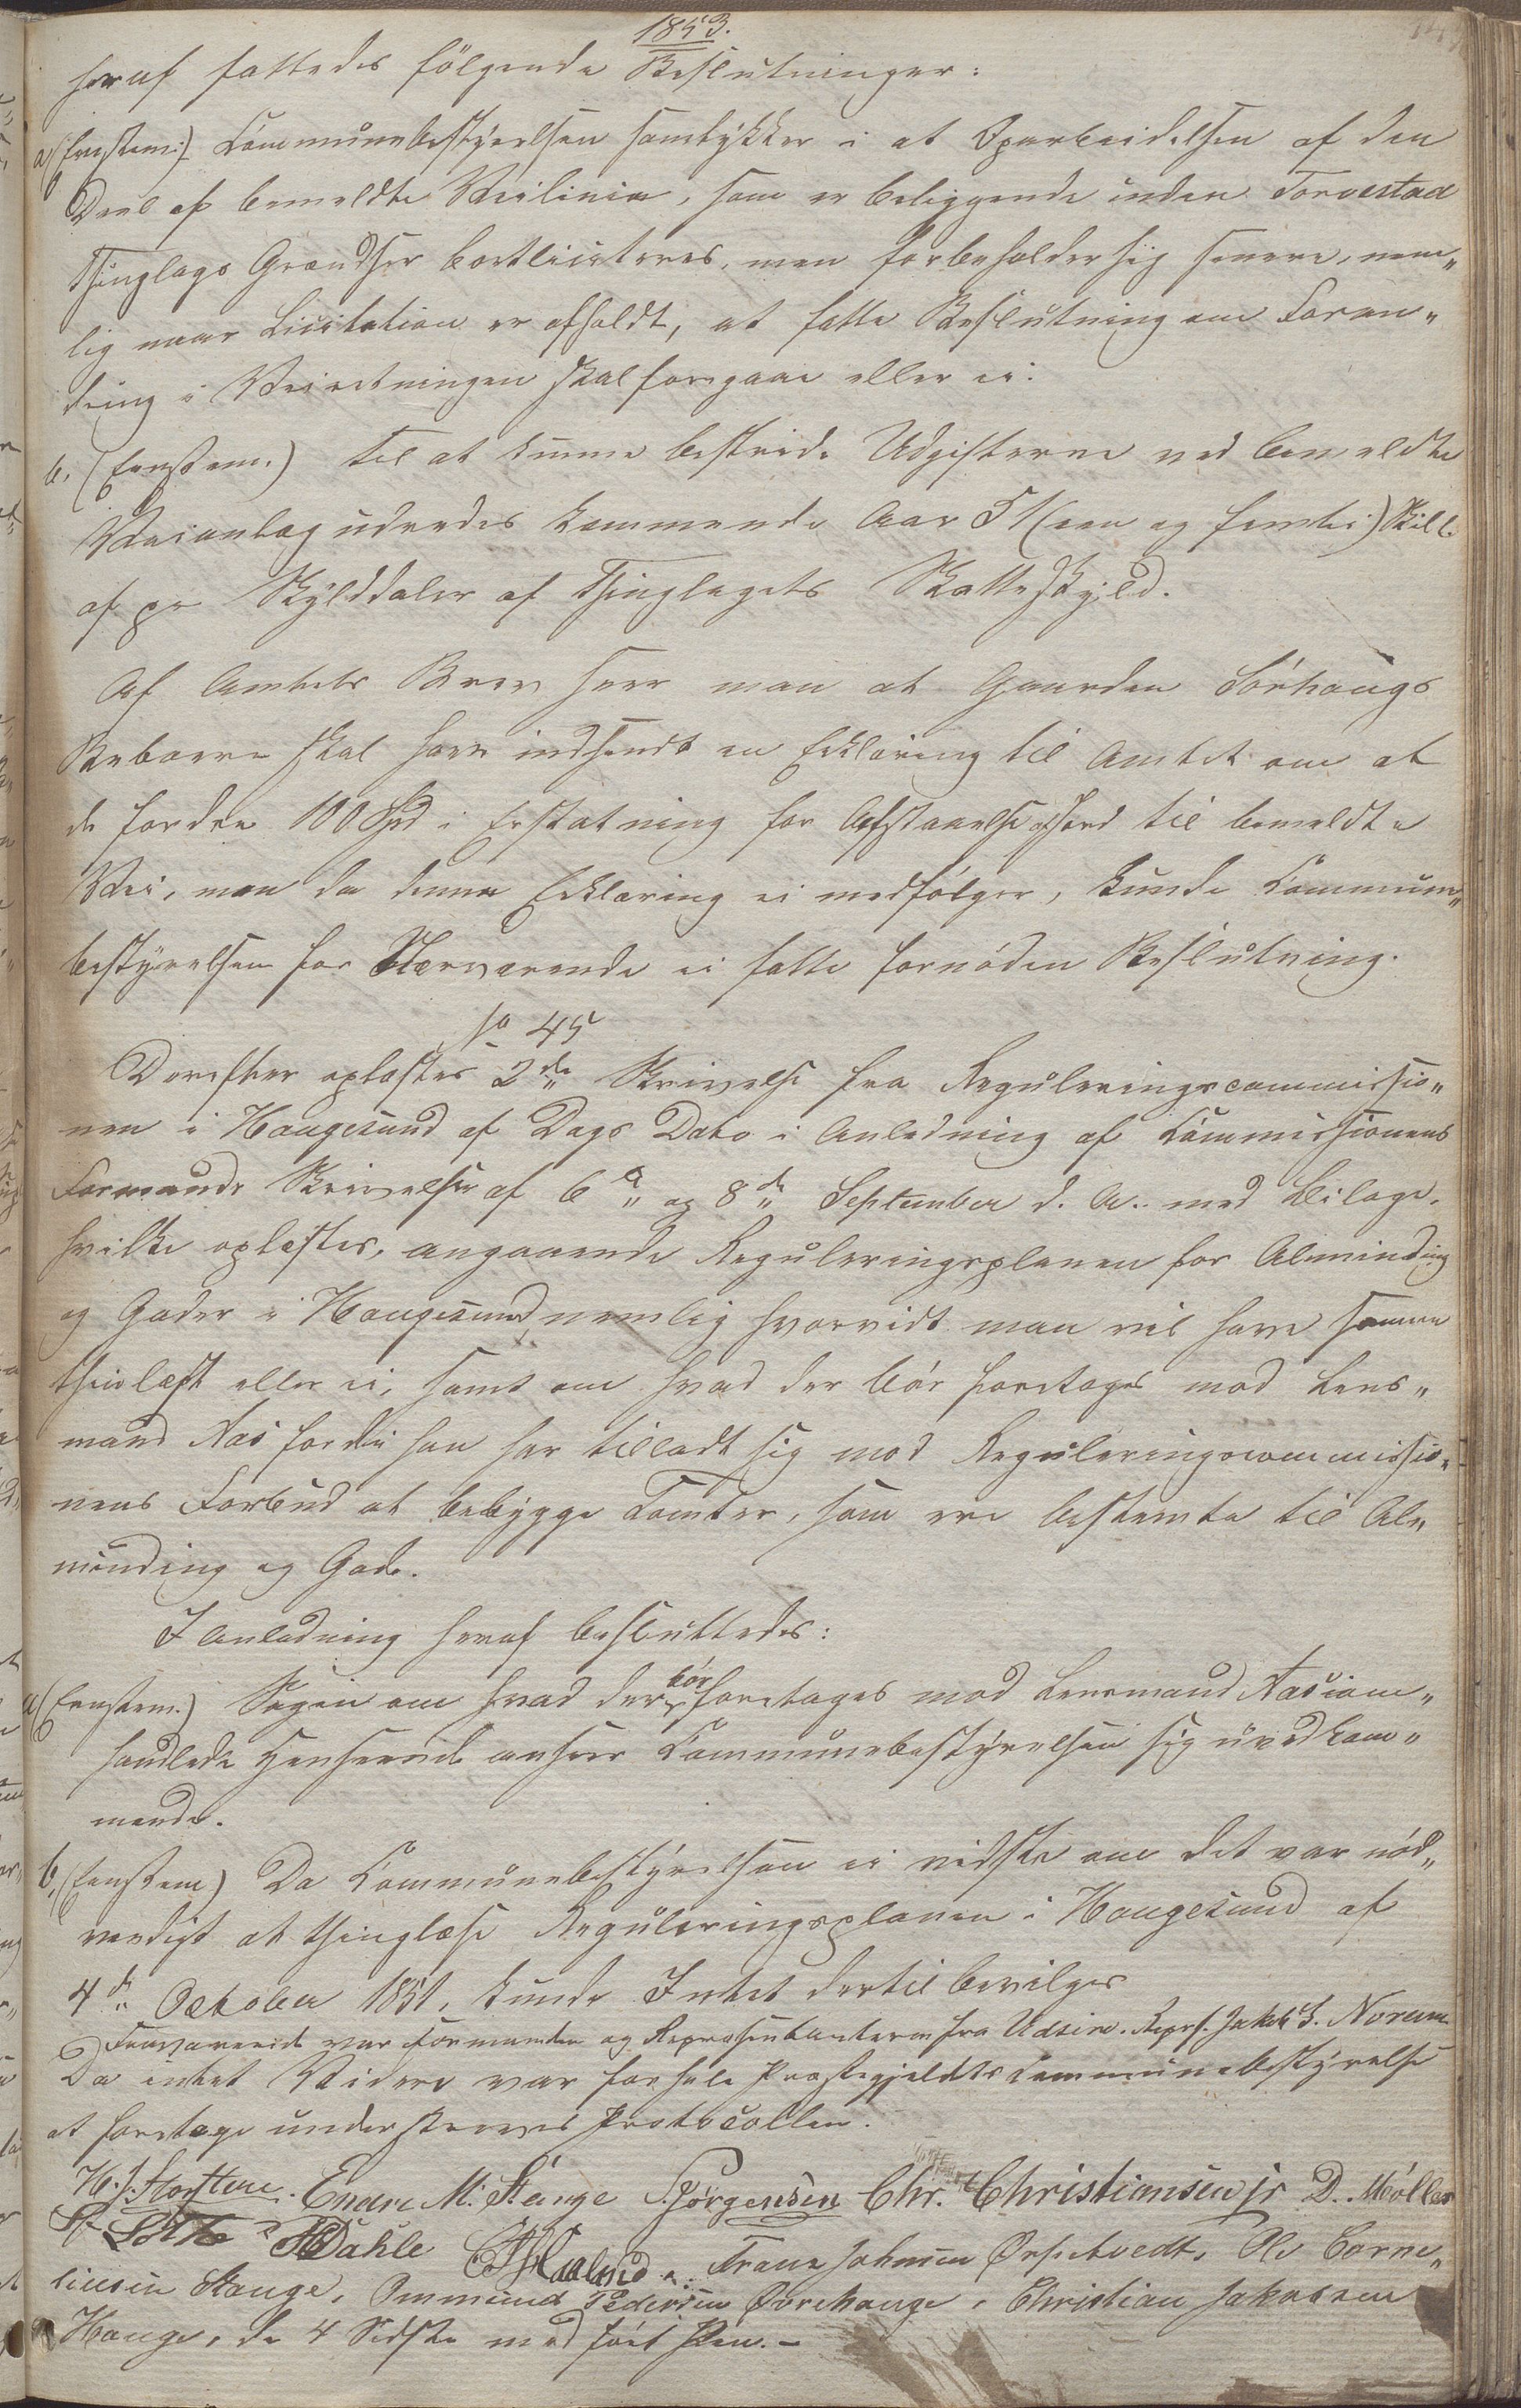 1853.
heraf fattedes fölgende Beslutninger:
a, (Eenstem:) Communebestÿrelsen samtÿkker i at Oparbeidelsen af den
Deel af bemeldte Veilinie, som er beliggende inden Torvestad
Thinglags Grændser bortliciteres, men forbeholder sig senere, nem„
lig naar Licitation er afholdt, at fatte Beslutning om Foran„
dring i Veiretningen skal foregaae eller ei.
b, (Eenstem.) Til at kunne bestride Udgifterne ved bemeldte
Veianlæg udredes kommende Aar 51 (een og femti) Skill.
af pr Skÿlddaler af Thinglagets Skatteskÿld.
Af Amtets Brev seer man at Gaarden Sörhaugs
Beboere skal have indsendt en Erklæring til Amtet om at
de fordre 100 Spd i Erstatning for Afstaaelse af Jord til bemeldte
Vei, men da denne Erklæring ei medfölger, kunde Commune„
bestÿrelsen for Nærværende ei fatte fornöden Beslutning.
No 45
Derefter oplæstes 2de Skrivelse fra Reguleringscommissio„
nen i Haugesund af Dags Dato i Anledning af Commissionens
Formands Skrivelser af 6te og 8de September d. A. med Bilage,
hvilke oplæstes, angaaende Reguleringsplanen for Alminding
og Gader i Haugesund, nemlig hvorvidt man vil have samme
thinlæst eller ei, samt om hvad der bör foretages mod Lens„
mand Aas fordi han har tilladt sig mod Reguleringscommissio„
nens Forbud at bebÿgge Tomter, som ere bestemte til Al„
minding og Gade.
I Anledning heraf besluttedes:
a (Eenstem.) Sagen om hvad der bör foretages mod Lensmand Aas i om„
handlede Henseende anseer Communebestÿrelsen sig uvedkom„
mende.
b, (Eenstem) Da Communebestÿrelsen ei vidste om det var nöd„
vendigt at thinglæse Reguleringsplanen i Haugesund af
4de October 1851, kunde Intet dertil bevilges
Fraværende var Formanden og Repræsentanterne fra Udsire. Repr. Jakob S. Norum
Da intet Videre var for hele Præstegjeldets Communebestÿrelse
at foretage underskreves Protocollen.
H. J. Stortun. Endre M. Stange S. Jörgensen Chr. Christiansen jr D. Möller
Dahle Haaland. Frans Johnsen Örpetvedt, Ole Corne„
liusen Stange, Ommund Pedersen Vorehauge, Christian Jakobsen
Hauge, de 4 Sidste med fört Pen. –